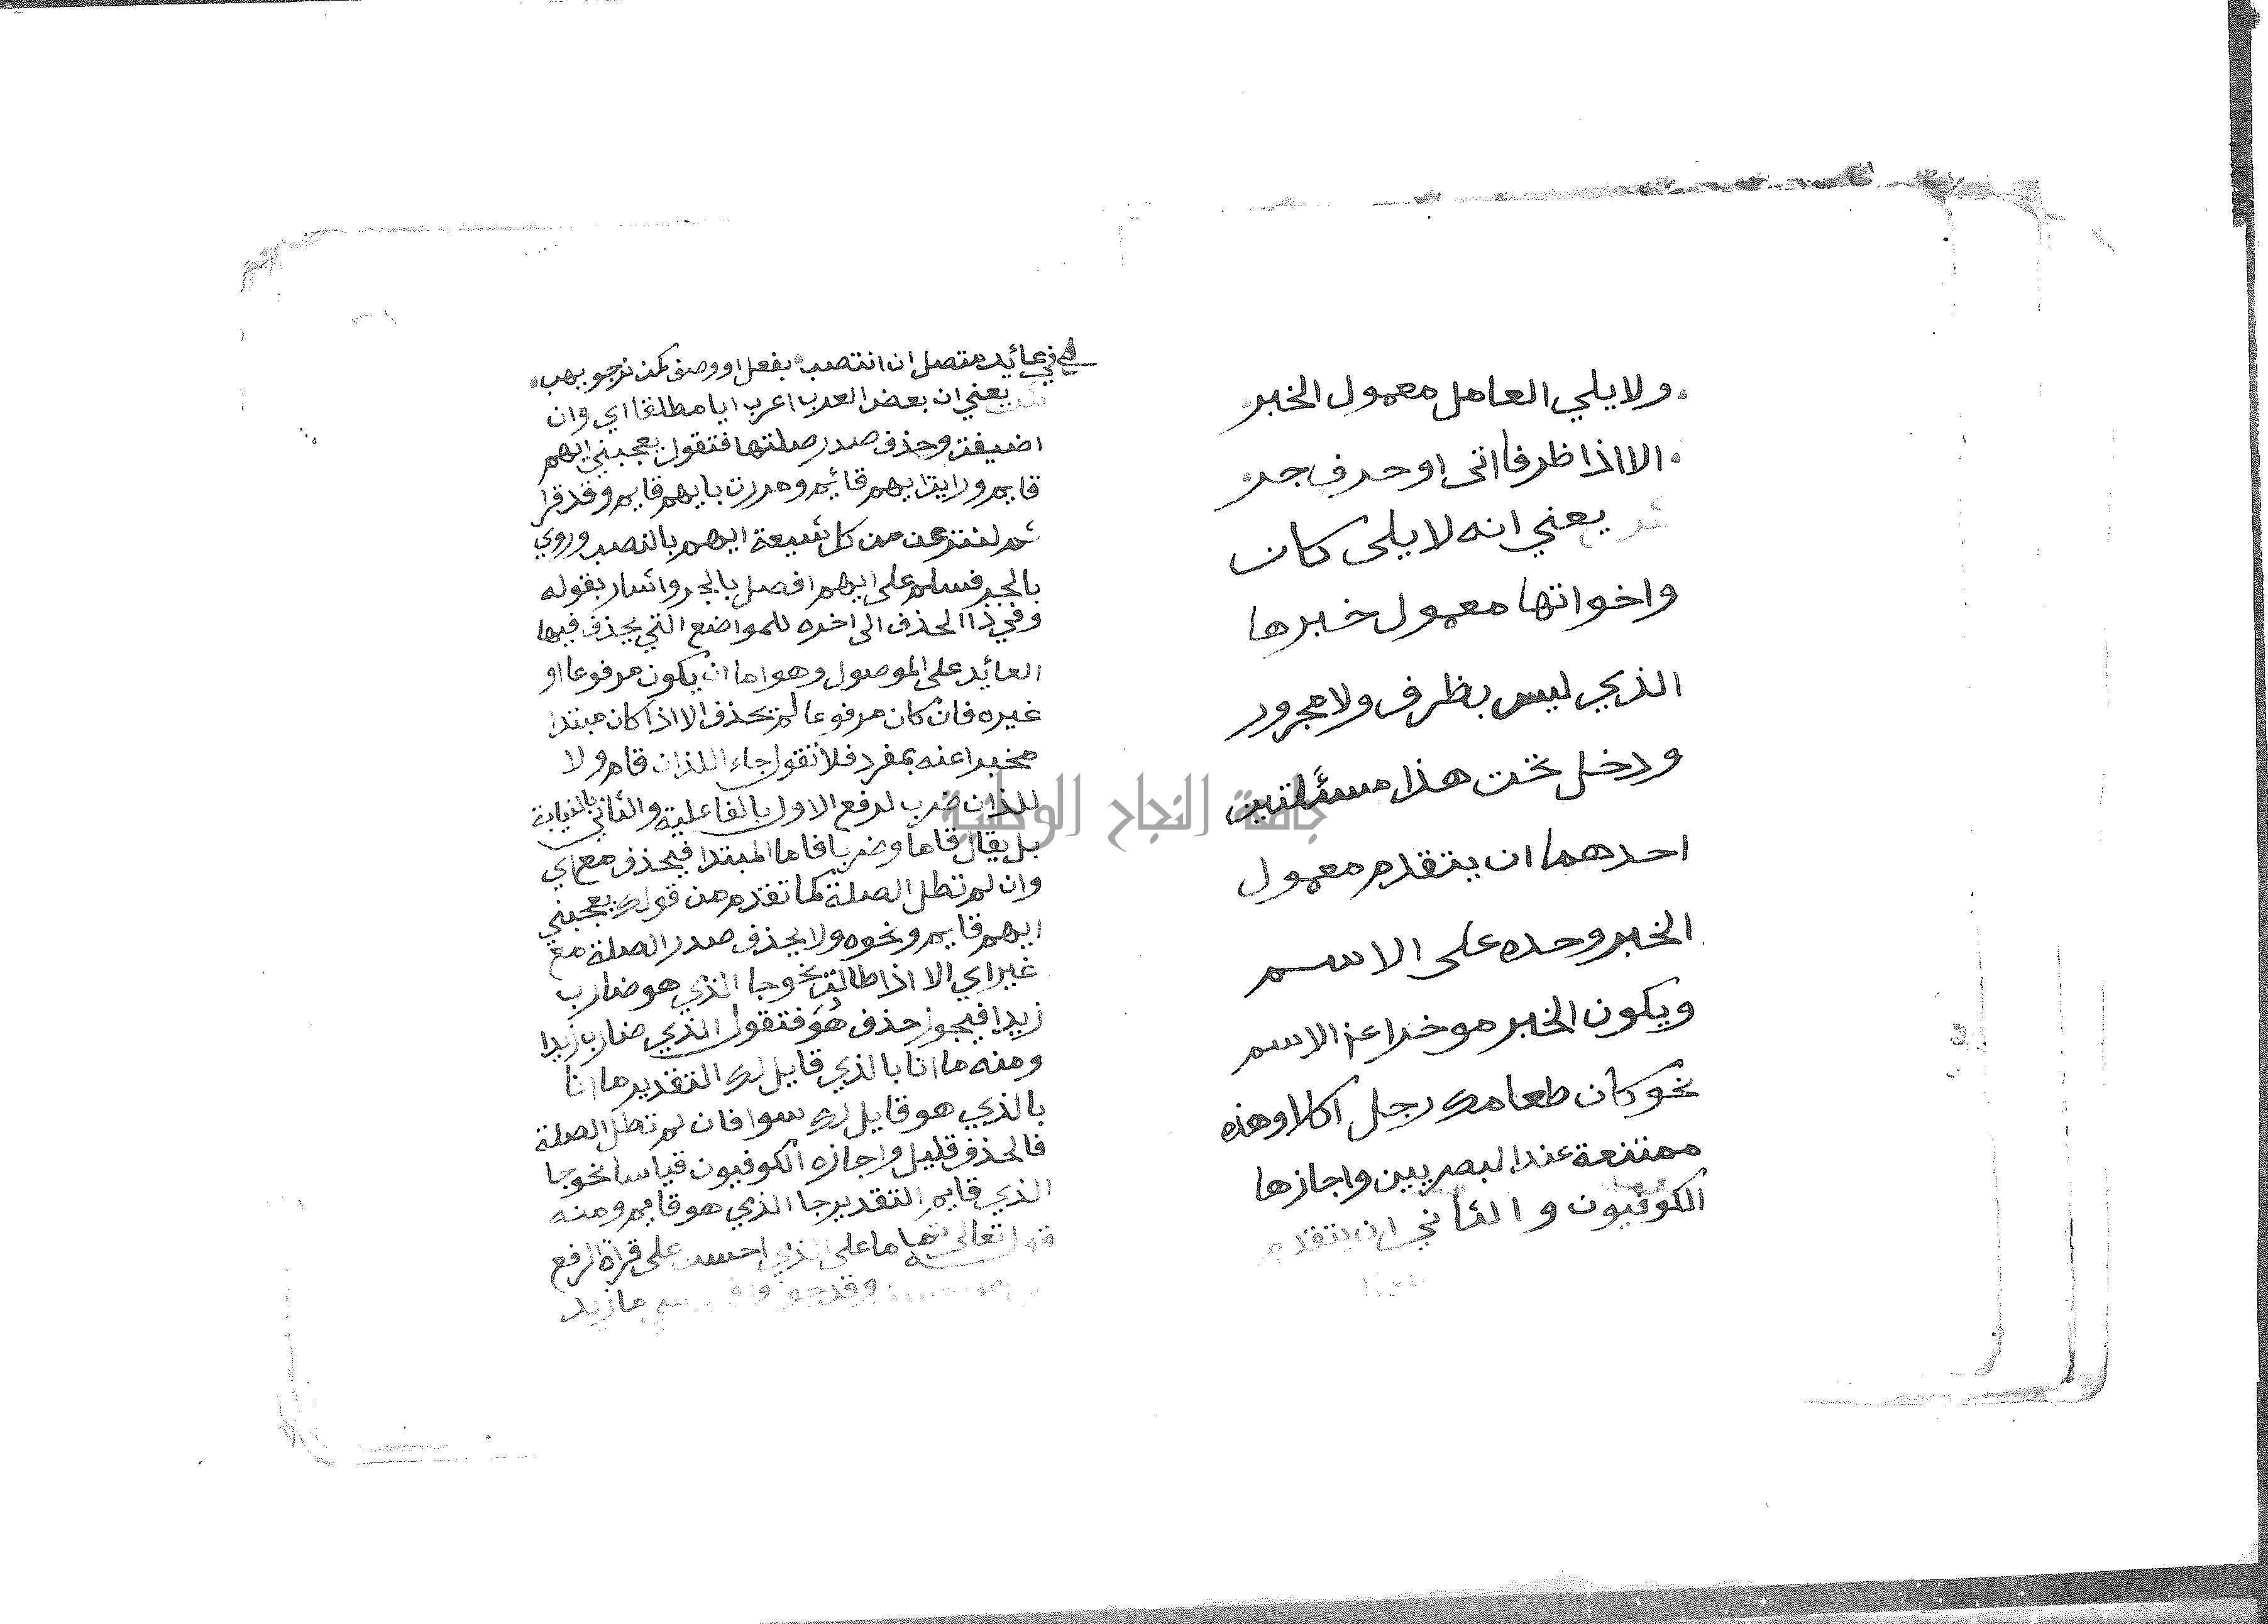 ولا يلي العامل معمول الخبر
الا اذا ظرفا اتى او حرف جر
يعني انه لا يلي كان
واخواتها معمول خبرها
الذي ليس بظرف ولا مجرور
ودخل تحت هذا مسئلتين
احدهما ان يتقدم معمول
الخبر وحده على الاسم
ويكون الخبر موخرا عن الاسم
نحو كان طعامك رجل آكلا وهذه
ممتنعة عند البصريين واجازها
الكوفيون والثاني ان يتقدم
في عائد متصل ان انتصب بفعل او وصف كمن نرجو يهب
يعني ان بعض العرب اعرب ايا مطلقا اي وان
اضيفت وحذف صدر صلتها فتقول يعجبني ايهم
قايم ورايت ايهم قائم ومررت بايهم قايم وقد قرا
ثم لننزعن من كل شيعة ايهم بالنصب وروي
بالجر فسلم على ايهم افضل بالجر واشار بقوله
وفي ذا الحذف الى اخره للمواضع التي يحذف فيها
العائد على الموصول وهو اما ان يكون مرفوعا او
غيره فان كان مرفوعا لم يحذف الا اذا كان مبتدا
مخبرا عنه بمفرد فلا تقول جاء اللذان قام ولا
للذان ضرب لرفع الاول بالفاعلية والثاني بالنيابة
بل يقال قاما وضربا فاما المبتدا فيحذف مع اي
وان لم تطل الصلة كما تقدم من قولك يعجبني
ايهم قايم ونحوه ولا يحذف صدر الصلة مع
غير اي الا اذا طالت نحو جا الذي هو ضارب
زيدا فيجوز حذف هو فتقول الذي ضارب زيدا
ومنه ما انا بالذي قايل لك التقدير ما انا
بالذي هو قايل لك سوا فان لم تطل الصلة
فالحذف قليل واجازه الكوفيون قياسا نحو جا
الذي قايم التقدير جا الذي هو قايم ومنه
قوله تعالى تماما على الذي احسن على قراة الرفع
وقد جوزوا في ما زيد
جامعة النجاح الوطنية